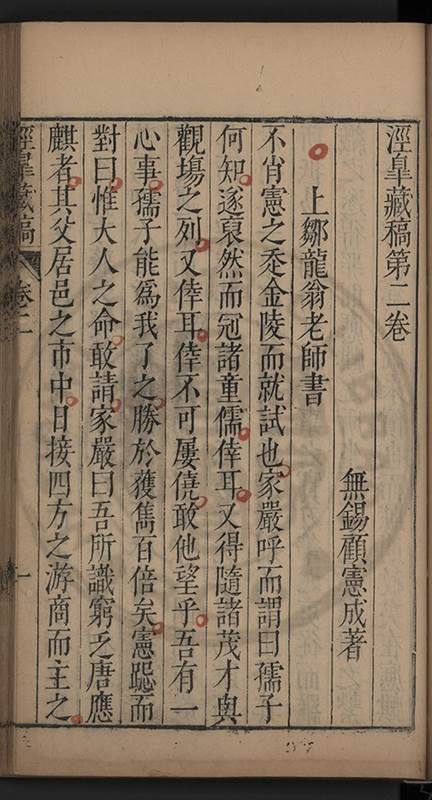 涇臯藏稿第二卷
無錫顧憲成著
上鄒龍翁老師書
不肖憲之忝金陵而就試也家嚴呼而謂曰孺子
何知遂裒然而冠諸童儒倖耳又得隨諸茂才與
觀塲之列又倖耳倖不可屢僥敢他望乎吾有一
心事孺子能爲我了之勝於獲雋百倍矣憲跽而
對曰惟大人之命敢請家嚴曰吾所識窮乏唐應
麒者其父居邑之市中日接四方之游商而主之
涇臯藏稿
卷二
一